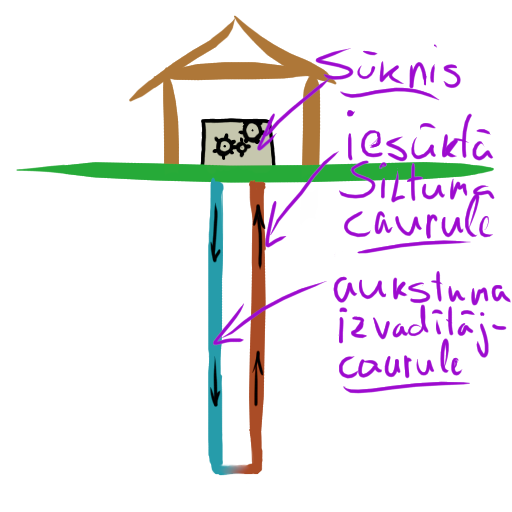 Sūknis
iesūktā
Siltuma
caurule
aukstuma
izvadītāj-
caurule